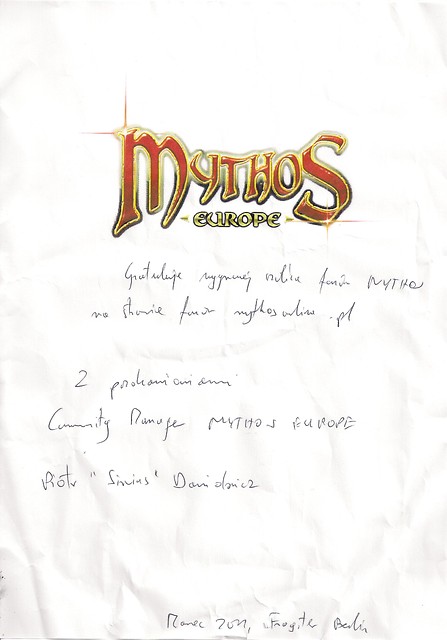 MYTHOS
EUROPE
Gratuluję wygranej MYTHOS
na stronie mythosonline.pl
Z pozdrowieniami
Community Manager MYTHOS EUROPE
Piotr "Sirius"
Marzec 2011, Frogster Berlin